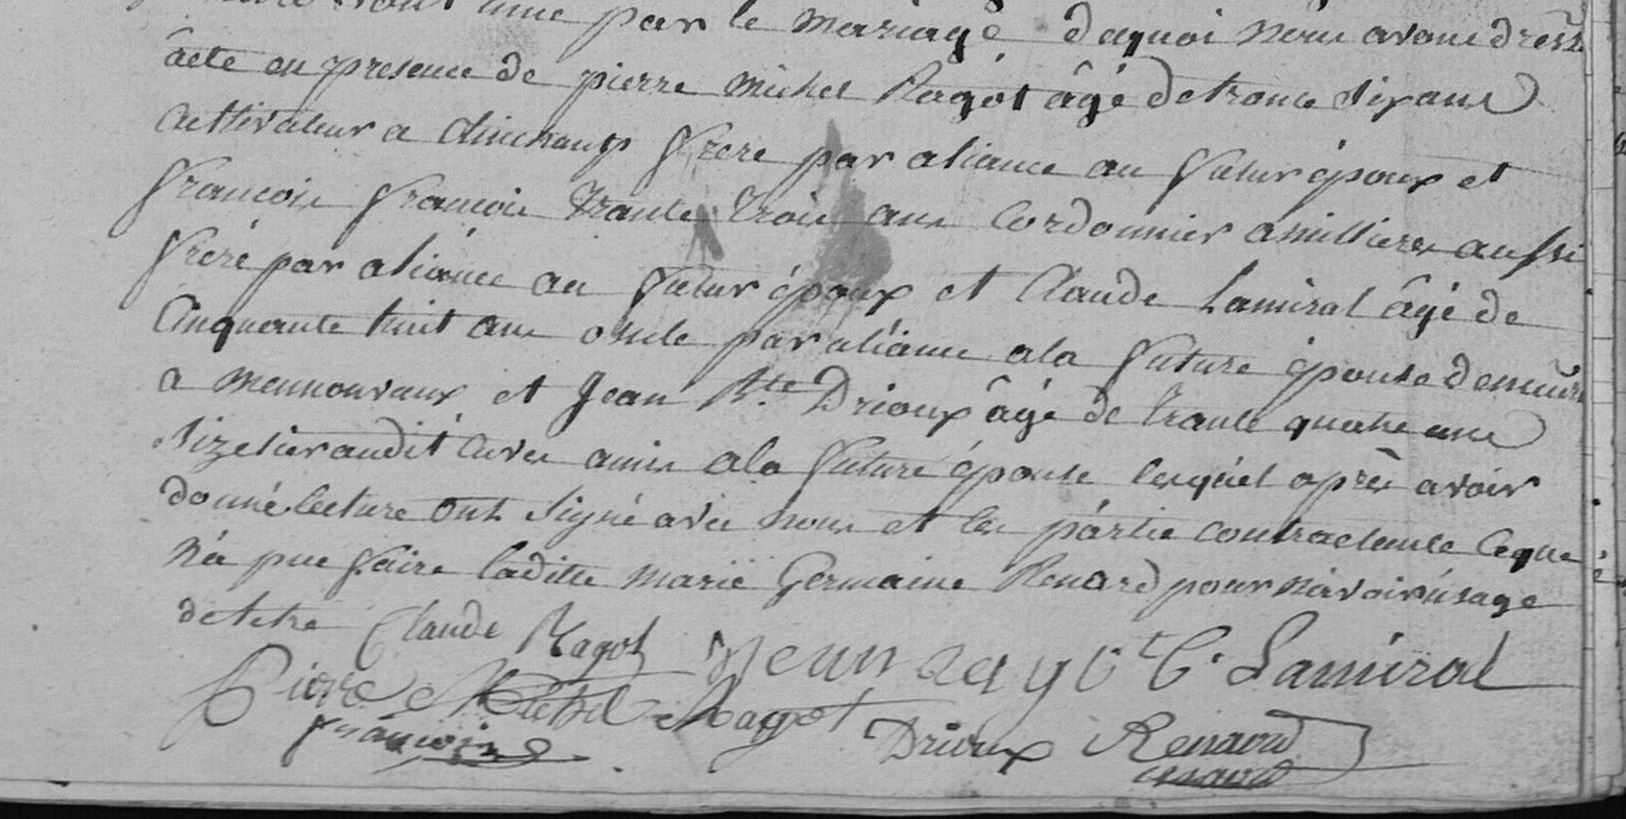 sont unie par le mariage daquoi nous avons dressé
acte en presence de pierre michel Ragot âgé de trante six ans
cultivateur a Chinchamp frere par aliance au futur époux et
francois francois trante trois ans Cordonnier amilliere aussi
freré par aliance au futur époux et Claude Lamiral âgé de
Cinquante huit ans oncle par aliance ala future épouse demeura
a mennouvaux et Jean Bte Drioux âgé de trante quatre ans
audit Cuves amis ala future épouse lesquel après avoir
donné lecture ont signé avec nous et les partie contractente Ceque
n'a pue faire laditte marie Germaine Renard pour n'avoir usage
de letre Claude Ragot Jean ragot C. Lamiral
Pierre Michel Ragot
francois Drioux Renard